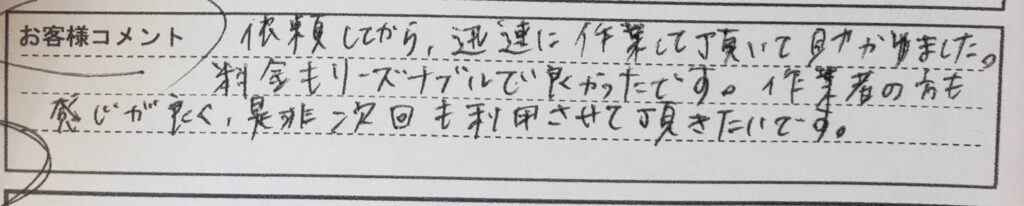 お客様コメント 依頼してから、迅速に作業して頂いて助かりました。
料金もリーズナブルで良かったです。作業者の方も
感じが良く、是非次回も利用させて頂きたいです。